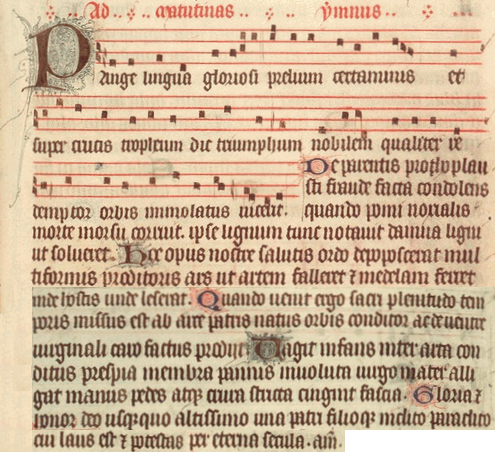 Ad matutinas ymnus
Pange lingua gloriosi prelium certaminis et
super crucis tropheum dic triumphum nobilem qualiter re
De parentis prothoplau
sti fraude facta condolens
demptor orbis immolatus vicerit. quando pomi noxialis
morte morsu corruit. ipse lignum tunc notavit damna ligni
ut solveret. Hoc opus nostre salutis ordo depoposcerat mul
tiformis proditoris ars ut artem falleret et medelam ferret
inde hostis unde leserat. Quando venit ergo sacri plenitudo tem
poris missus est ab arce patris natus orbis conditor ac de ventre
virginali caro factus prodiit Vagit infans inter arta con
ditus presepia membra pannis involuta virgo mater alli
gat manus pedes atque crura stricta cingit fascia. Gloria et
honor deo usquequo altissimo una patri filioque inclito paraclito
cui laus est et potestas per eterna secula. am.